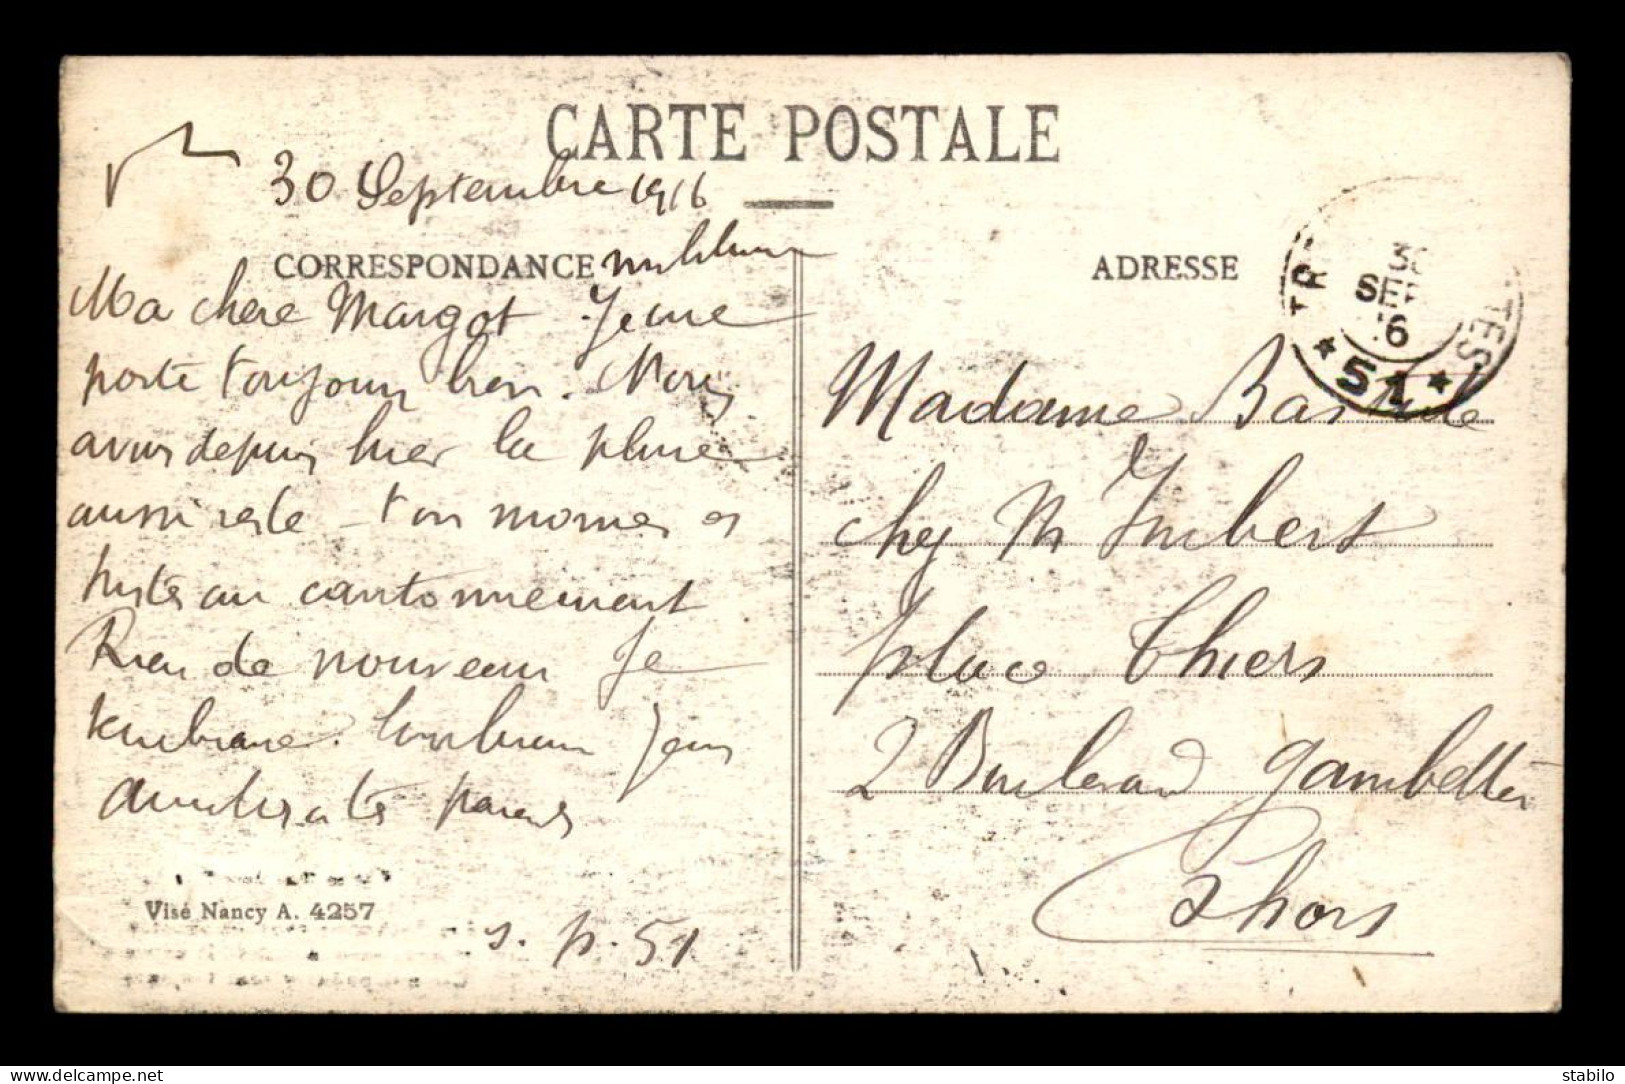 CARTE POSTALE
30 Septembre 1916
CORRESPONDANCE
Ma chere Margot Je me
porte toujours bien. Nous
avons depuis hier la pluie
aussi reste ton mornes et
tristes au cantonnement
Rien de nouveau Je
t'embrasse. bien
amities a tes parents
Visé Nancy A. 4257
s. p. 51
ADRESSE
TR
30
SEP
16
TES
★ 51 ★
Madame Bastide
chez M Imbert
place Thiers
2 Boulevard Gambetta
Cahors
delcampe.net
stabilo